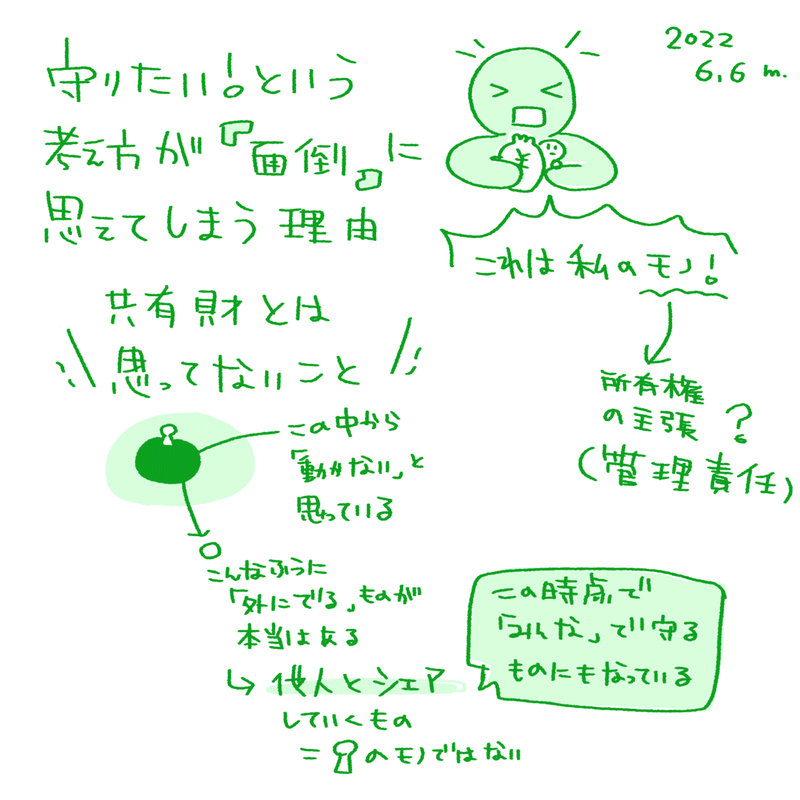 守りたい!という
考え方が『面倒』に
思えてしまう理由
2022
6.6 m.
¥
これは私のモノ!
所有権
の主張?
(管理責任)
共有財とは
思ってないこと
この中から
「動かない」と
思っている
こんなふうに
「外にでる」ものが
本当はある
↳ 他人とシェア
していくもの
= のモノではない
この時点で
「みんな」で守る
ものにもなっている